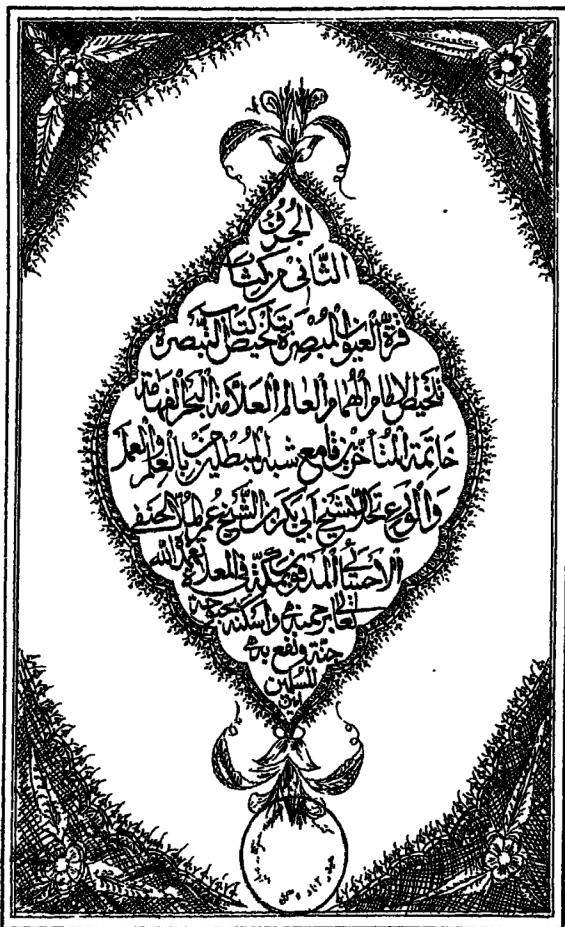 الجزء
الثاني من كتاب
قرة العيون المبصرة بتلخيص كتاب التبصرة
تلخيص الامام الهمام العالم العلامة البحر الفهامة
خاتمة المتأخرين قامع شبه المبطلين من بالعلم والعمل
والورع تحلى الشيخ أبي بكر بن الشيخ عمر الملا الحنفي
الأحسائي المدفون بمكة في المعلاة تغمده الله
تعالى برحمته وأسكنه بحبوحة
جنته ونفع به
المسلمين
امين